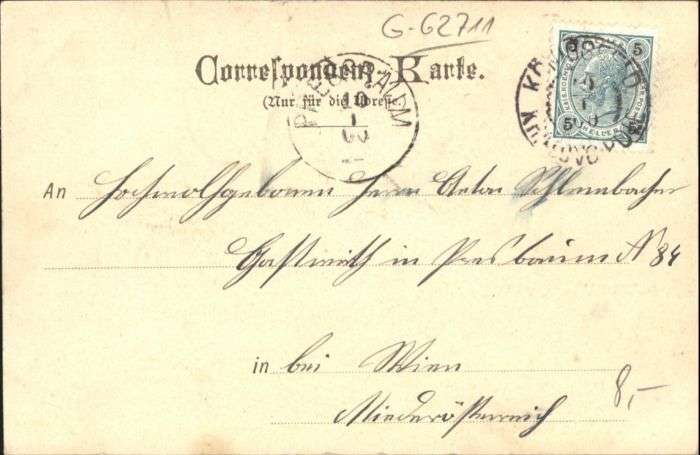 G-62711
Correspondenz-Karte.
(Nur für die Adresse.)
PRESSBAUM
10
1
An Hochwohlgeboren Herrn Anton
Gastwirth in Presbaum N 84
in bei Wien
Niederösterreich
8,-
5
5 HELLER